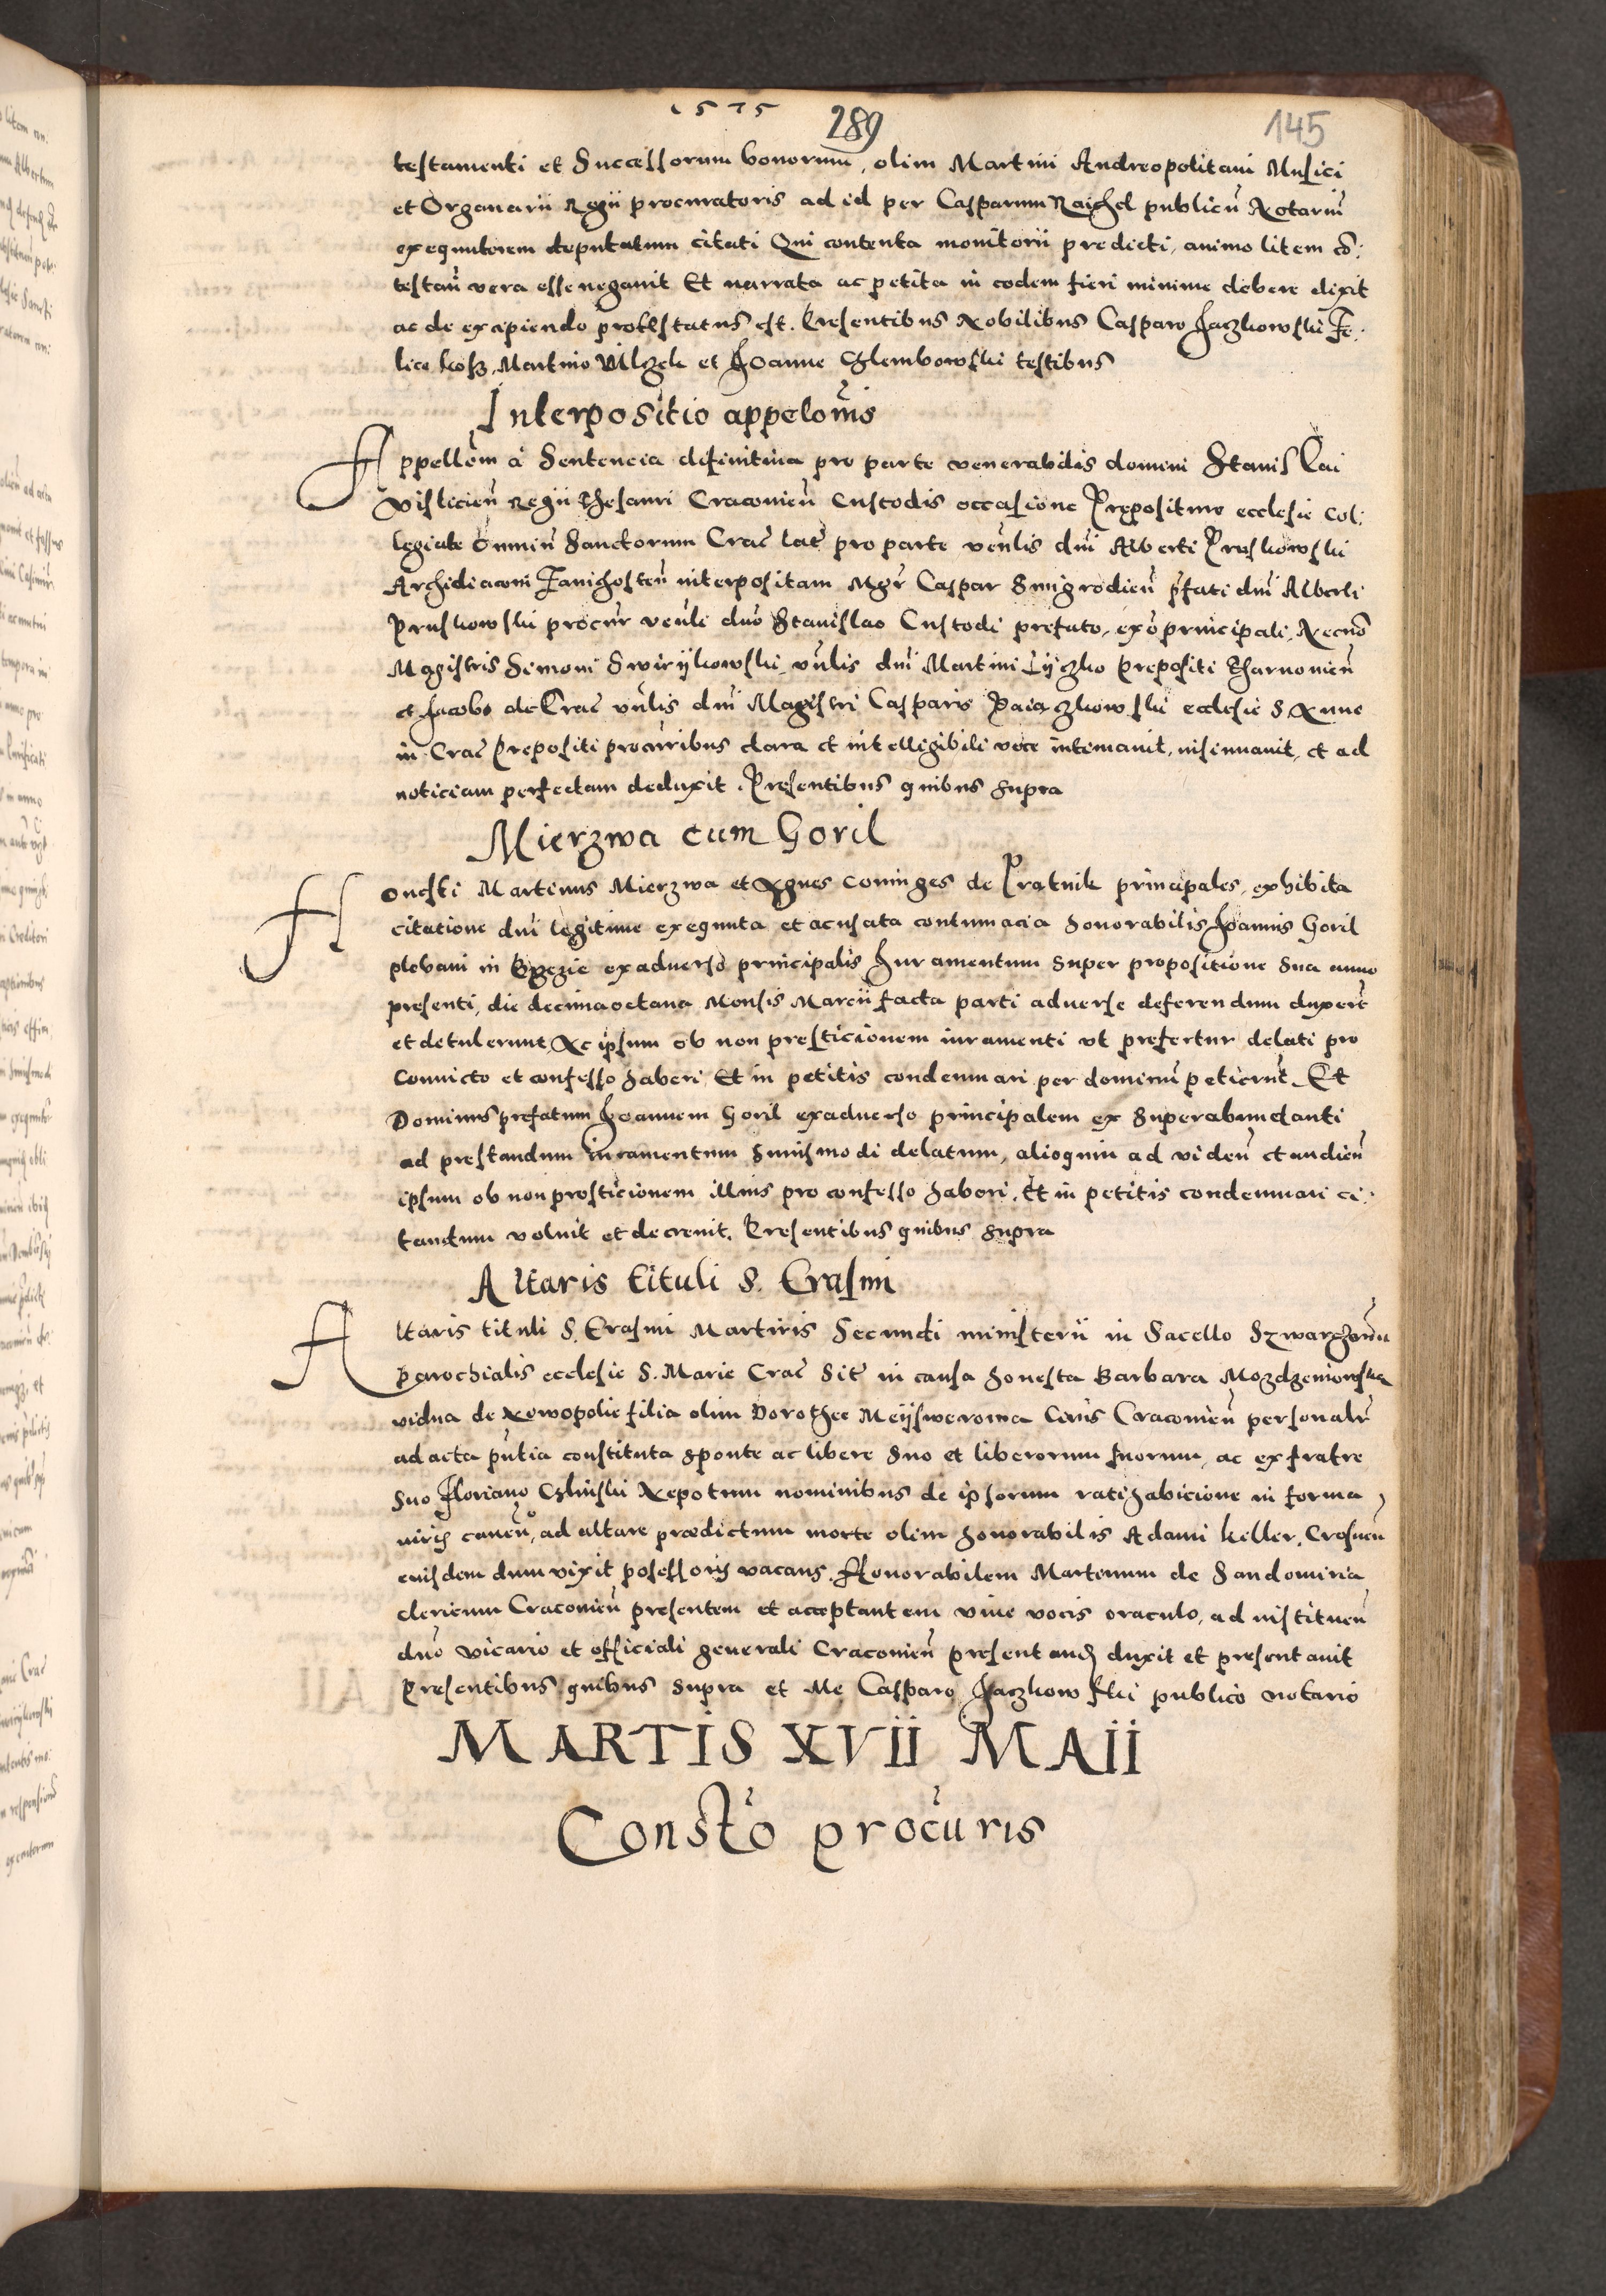 1575
289
145
testamenti et Successorum bonorum, olim Martini Andreopolitani Musici
et Organarii Regii procuratoris ad id per Casparum Raichel publicū Notariū
exequutorem deputatum citati Qui contenta monitorii predicti, animo litem cō:
testan̄ vera esse negavit Et narrata ac petita in eodem fieri minime debere dixit
ac de excipiendo protestatus est. Presentibus Nobilibus Casparo Jaczkowski Fe:
lice Martino et Joanne Chlembowski testibus
Interpositio appelōnis
Appellōm à Sentencia difinitiva pro parte venerabilis domini Stanislai
Vislicien̄ Regii Thesauri Cracovien̄ Custodis occasione Prepositure ecclesie Col:
legiate Omniū Sanctorum Crac̄ lat̄ pro parte ven̄lis dn̄i Alberti Pruskowski
Archidiaconi Zavichosten̄ interpositam Mgr̄ Caspar Smigrodien̄ p̄fati dn̄i Alberti
Pruskowski procur̄ ven̄li dn̄o Stanislao Custodi prefato, exō principali, Necnō
Magistris Simoni Swirijkowski v̄nlis dn̄i Martini Lijczko Prepositi Tharnovien̄
et Jacobo de Crac̄ v̄nlis dn̄i Magistri Casparis Paiaczkowski ecclesie S. Anne
in Crac̄ Prepositi procuribus clara et intelligibili voce intimavit, insinuavit, et ad
noticiam perfectam deduxit. Presentibus quibus supra
Mierzwa cum Goril
Honesti Martinus Mierzwa et Agnes coniuges de Prątnik principales, exhibita
citatione dn̄i legitime exequuta et acusata contumacia honorabilis Joannis Goril
plebani in ex adverso principalis Juramentum super propositione sua anno
presenti, die decima octava Mensis Marcii facta parti adverse deferendum duxer̄t
et detulerunt, Ac ipsum ob non presticionem iuramenti ut prefertur delati pro
Convicto et confesso haberi, Et in petitis condemnari per dominū petierūt. Et
Dominus prefatum Joannem Goril ex adverso principalem ex superabundanti
ad prestandum iuramentum huiusmodi delatum, alioquin ad viden̄ et audien̄
ipsum ob non presticionem illius pro confesso haberi, Et in petitis condemnari ci:
tandum voluit et decrevit. Presentibus quibus supra
Altaris tituli S. Erasmi
Altaris tituli S. Erasmi Martiris Secundi ministerii in Sacello
Parochialis ecclesie S. Marie Crac̄ sit̄ in causa honesta Barbara Mozdzeniowska
vidua de Nowopolie filia olim Dorothee Meijswerowa Civis Cracovien̄ personalr̄
ad acta pn̄tia constituta sponte ac libere suo et liberorum suorum, ac ex fratre
suo Floriano Nepotum nominibus de ipsorum ratihabicione in forma
iuris caven̄, ad altare prædictum morte olim honorabilis Adami Keller, Crosnen̄
eiusdem dum vixit posessoris vacans. Honorabilem Martinum de Sandomiria
clericum Cracovien̄ presentem et acceptantem vive vocis oraculo, ad instituen̄
dn̄o Vicario et officiali generali Cracovien̄ presentand duxit et presentavit
Presentibus quibus supra et Me Casparo Jaczkowski publico notario
MARTIS XVII MAII
Constō procuris